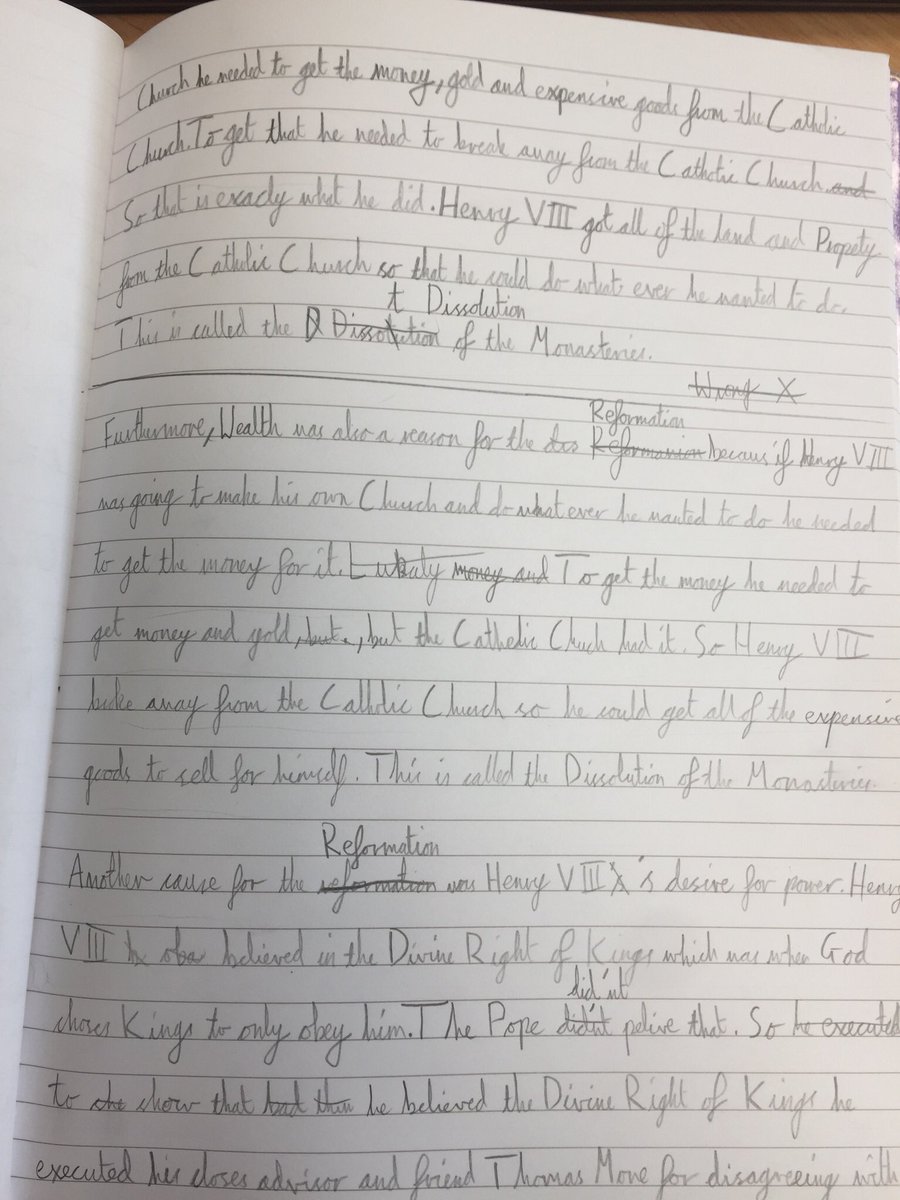 Church he needed to get the money, gold and expensive goods from the Catholic
Church. To get that he needed to break away from the Catholic Church. and
So that is exacly what he did. Henry VIII got all of the land and Propety
from the Catholic Church so that he could do what ever he wanted to do.
t Dissolution
This is called the D Dissolution of the Monasteries.
Wrong X
Reformation
Furthermore, Wealth was also a reason for the Reformanion becaus if Henry VIII
was going to make his own Church and do what ever he wanted to do he needed
to get the money for it. money and To get the money he needed to
get money and gold, but., but the Catholic Chuch had it. So Henry VIII
broke away from the Catholic Church so he could get all of the expensive
goods to sell for himself. This is called the Dissolution of the Monasteries.
Reformation
Another cause for the reformation was Henry VIII's desire for power. Henry
VIII believed in the Divine Right of Kings which was when God
choses Kings to only obey him. The Pope didn't pelive that. So he executed
did'nt
to she show that had then he believed the Divine Right of Kings he
executed his closes advisor and friend Thomas More for disagreeing with